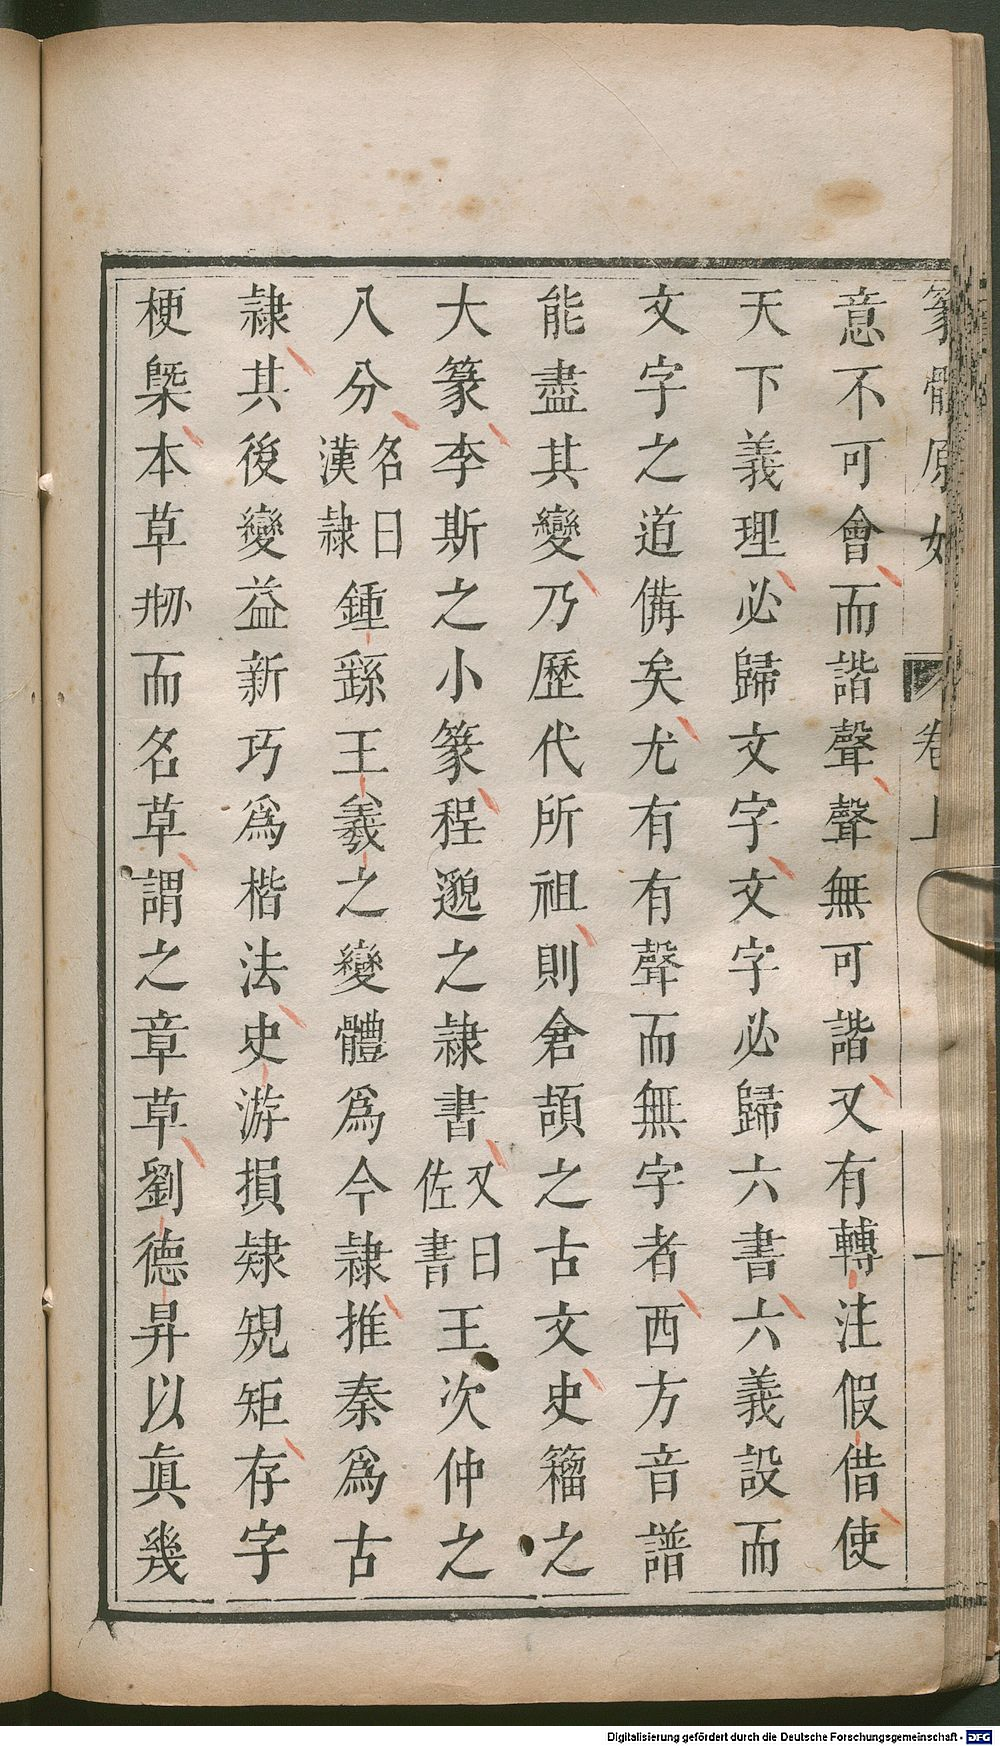 篆體原始 卷上 一
意不可會而諧聲聲無可諧又有轉注假借使
天下義理必歸文字文字必歸六書六義設而
文字之道備矣尤有有聲而無字者西方音譜
能盡其變乃歷代所祖則倉頡之古文史籀之
大篆李斯之小篆程邈之隸書又曰佐書王次仲之
八分名曰漢隸鍾繇王羲之變體爲今隸推秦爲古
隸其後變益新巧爲楷法史游損隸規矩存字
梗槩本草刱而名草謂之章草劉德昇以眞幾
Digitalisierung gefördert durch die Deutsche Forschungsgemeinschaft - DFG